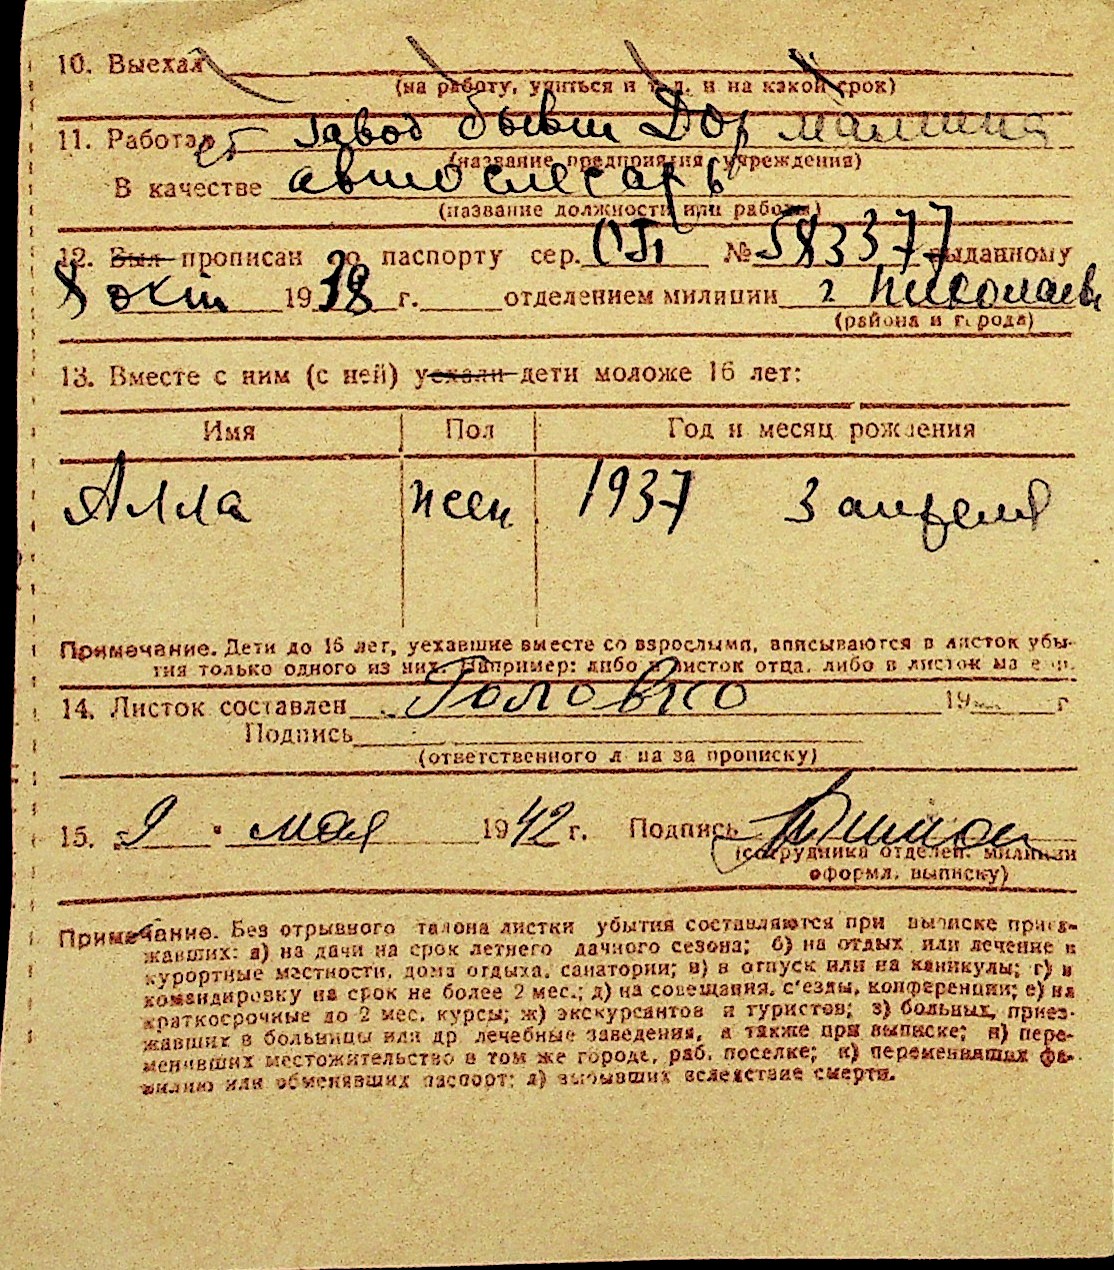 10. Выехал
(на работу, учиться и т. д. и на какой срок)
11. Работает завод бывш Дормашина
(название предприятия, учреждения)
В качестве автослесарь
(название должности или работы)
12. Был прописан по паспорту сер. № 583377 выданному
8 окт 1938 г. отделением милиции г Николаев
(района и города)
13. Вместе с ним (с ней) уехали дети моложе 16 лет:
Имя Пол Год и месяц рождения
Алла жен 1937 3 апреля
Примечание. Дети до 16 лет, уехавшие вместе со взрослыми, вписываются в листок убы-
тия только одного из них. Например: либо в листок отца, либо в листок матери.
14. Листок составлен Головко 19 г
Подпись
(ответственного лица за прописку)
15. 9 " мая 1942 г. Подпись
(сотрудника отделен. милиции
оформл. выписку)
Примечание. Без отрывного талона листки убытия составляются при выписке приез-
жавших: а) на дачи на срок летнего дачного сезона; б) на отдых или лечение в
курортные местности, дома отдыха, санатории; в) в отпуск или на каникулы; г) в
командировку на срок не более 2 мес.; д) на совещания, с'езды, конференции; е) на
краткосрочные до 2 мес. курсы; ж) экскурсантов и туристов; з) больных, приез-
жавших в больницы или др. лечебные заведения, а также при выписке; и) пере-
менивших местожительство в том же городе, раб. поселке; к) переменивших фа-
милию или обменявших паспорт; л) выбывших вследствие смерти.